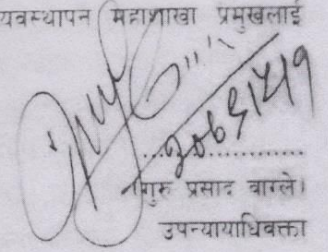 यवस्थापन महाशाखा प्रमुखलाई
२०६९।५।१
....................
(गुरु प्रसाद वाग्ले)
उपन्यायाधिवक्ता